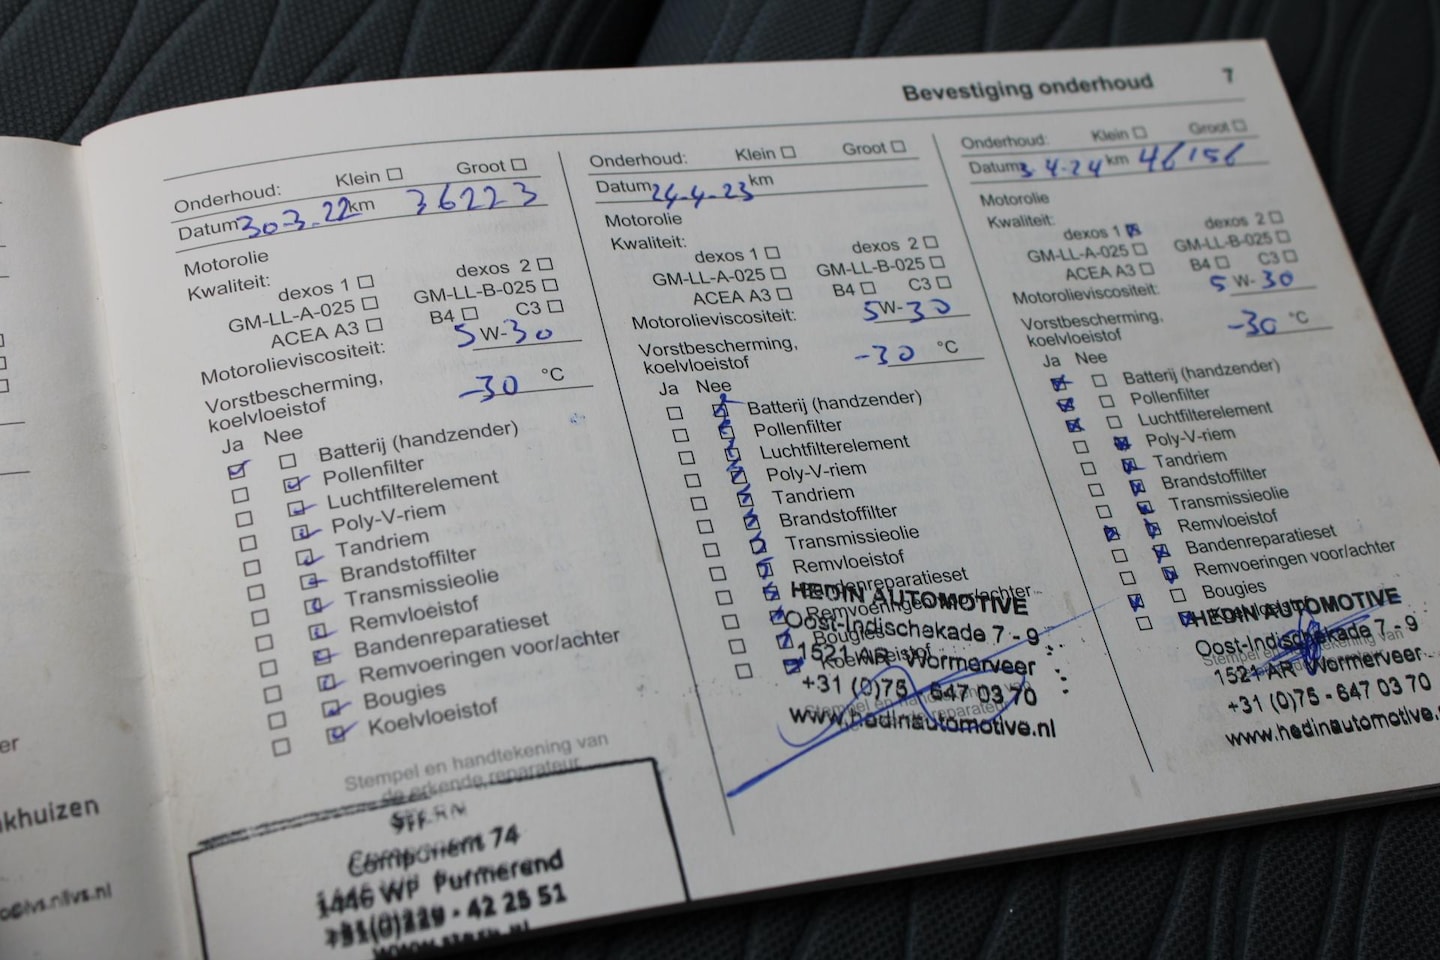 Bevestiging onderhoud 7
Onderhoud: Klein Groot
Datum 30-3-22 km 36223
Motorolie
Kwaliteit:
dexos 1 dexos 2
GM-LL-A-025 GM-LL-B-025
ACEA A3 B4 C3
Motorolieviscositeit: 5 W-30
Vorstbescherming,
koelvloeistof -30 °C
Ja Nee
Batterij (handzender)
Pollenfilter
Luchtfilterelement
Poly-V-riem
Tandriem
Brandstoffilter
Transmissieolie
Remvloeistof
Bandenreparatieset
Remvoeringen voor/achter
Bougies
Koelvloeistof
Stempel en handtekening van
de erkende reparateur
STERN
Component 74
1446 WP Purmerend
- 42 25 51
www.stern.nl
Onderhoud: Klein Groot
Datum 24-4-23 km
Motorolie
Kwaliteit:
dexos 1 dexos 2
GM-LL-A-025 GM-LL-B-025
ACEA A3 B4 C3
Motorolieviscositeit: 5W-30
Vorstbescherming,
koelvloeistof -30 °C
Ja Nee
Batterij (handzender)
Pollenfilter
Luchtfilterelement
Poly-V-riem
Tandriem
Brandstoffilter
Transmissieolie
Remvloeistof
Bandenreparatieset
Remvoeringen voor/achter
Bougies
Koelvloeistof
HEDIN AUTOMOTIVE
Oost-Indischekade 7 - 9
1521 AR Wormerveer
+31 (0)75 - 647 03 70
www.hedinautomotive.nl
Onderhoud: Klein Groot
Datum 3-4-24 km 46156
Motorolie
Kwaliteit:
dexos 1 dexos 2
GM-LL-A-025 GM-LL-B-025
ACEA A3 B4 C3
Motorolieviscositeit: 5 W-30
Vorstbescherming,
koelvloeistof -30 °C
Ja Nee
Batterij (handzender)
Pollenfilter
Luchtfilterelement
Poly-V-riem
Tandriem
Brandstoffilter
Transmissieolie
Remvloeistof
Bandenreparatieset
Remvoeringen voor/achter
Bougies
HEDIN AUTOMOTIVE
Oost-Indischekade 7 - 9
1521 AR Wormerveer
+31 (0)75 - 647 03 70
www.hedinautomotive.nl